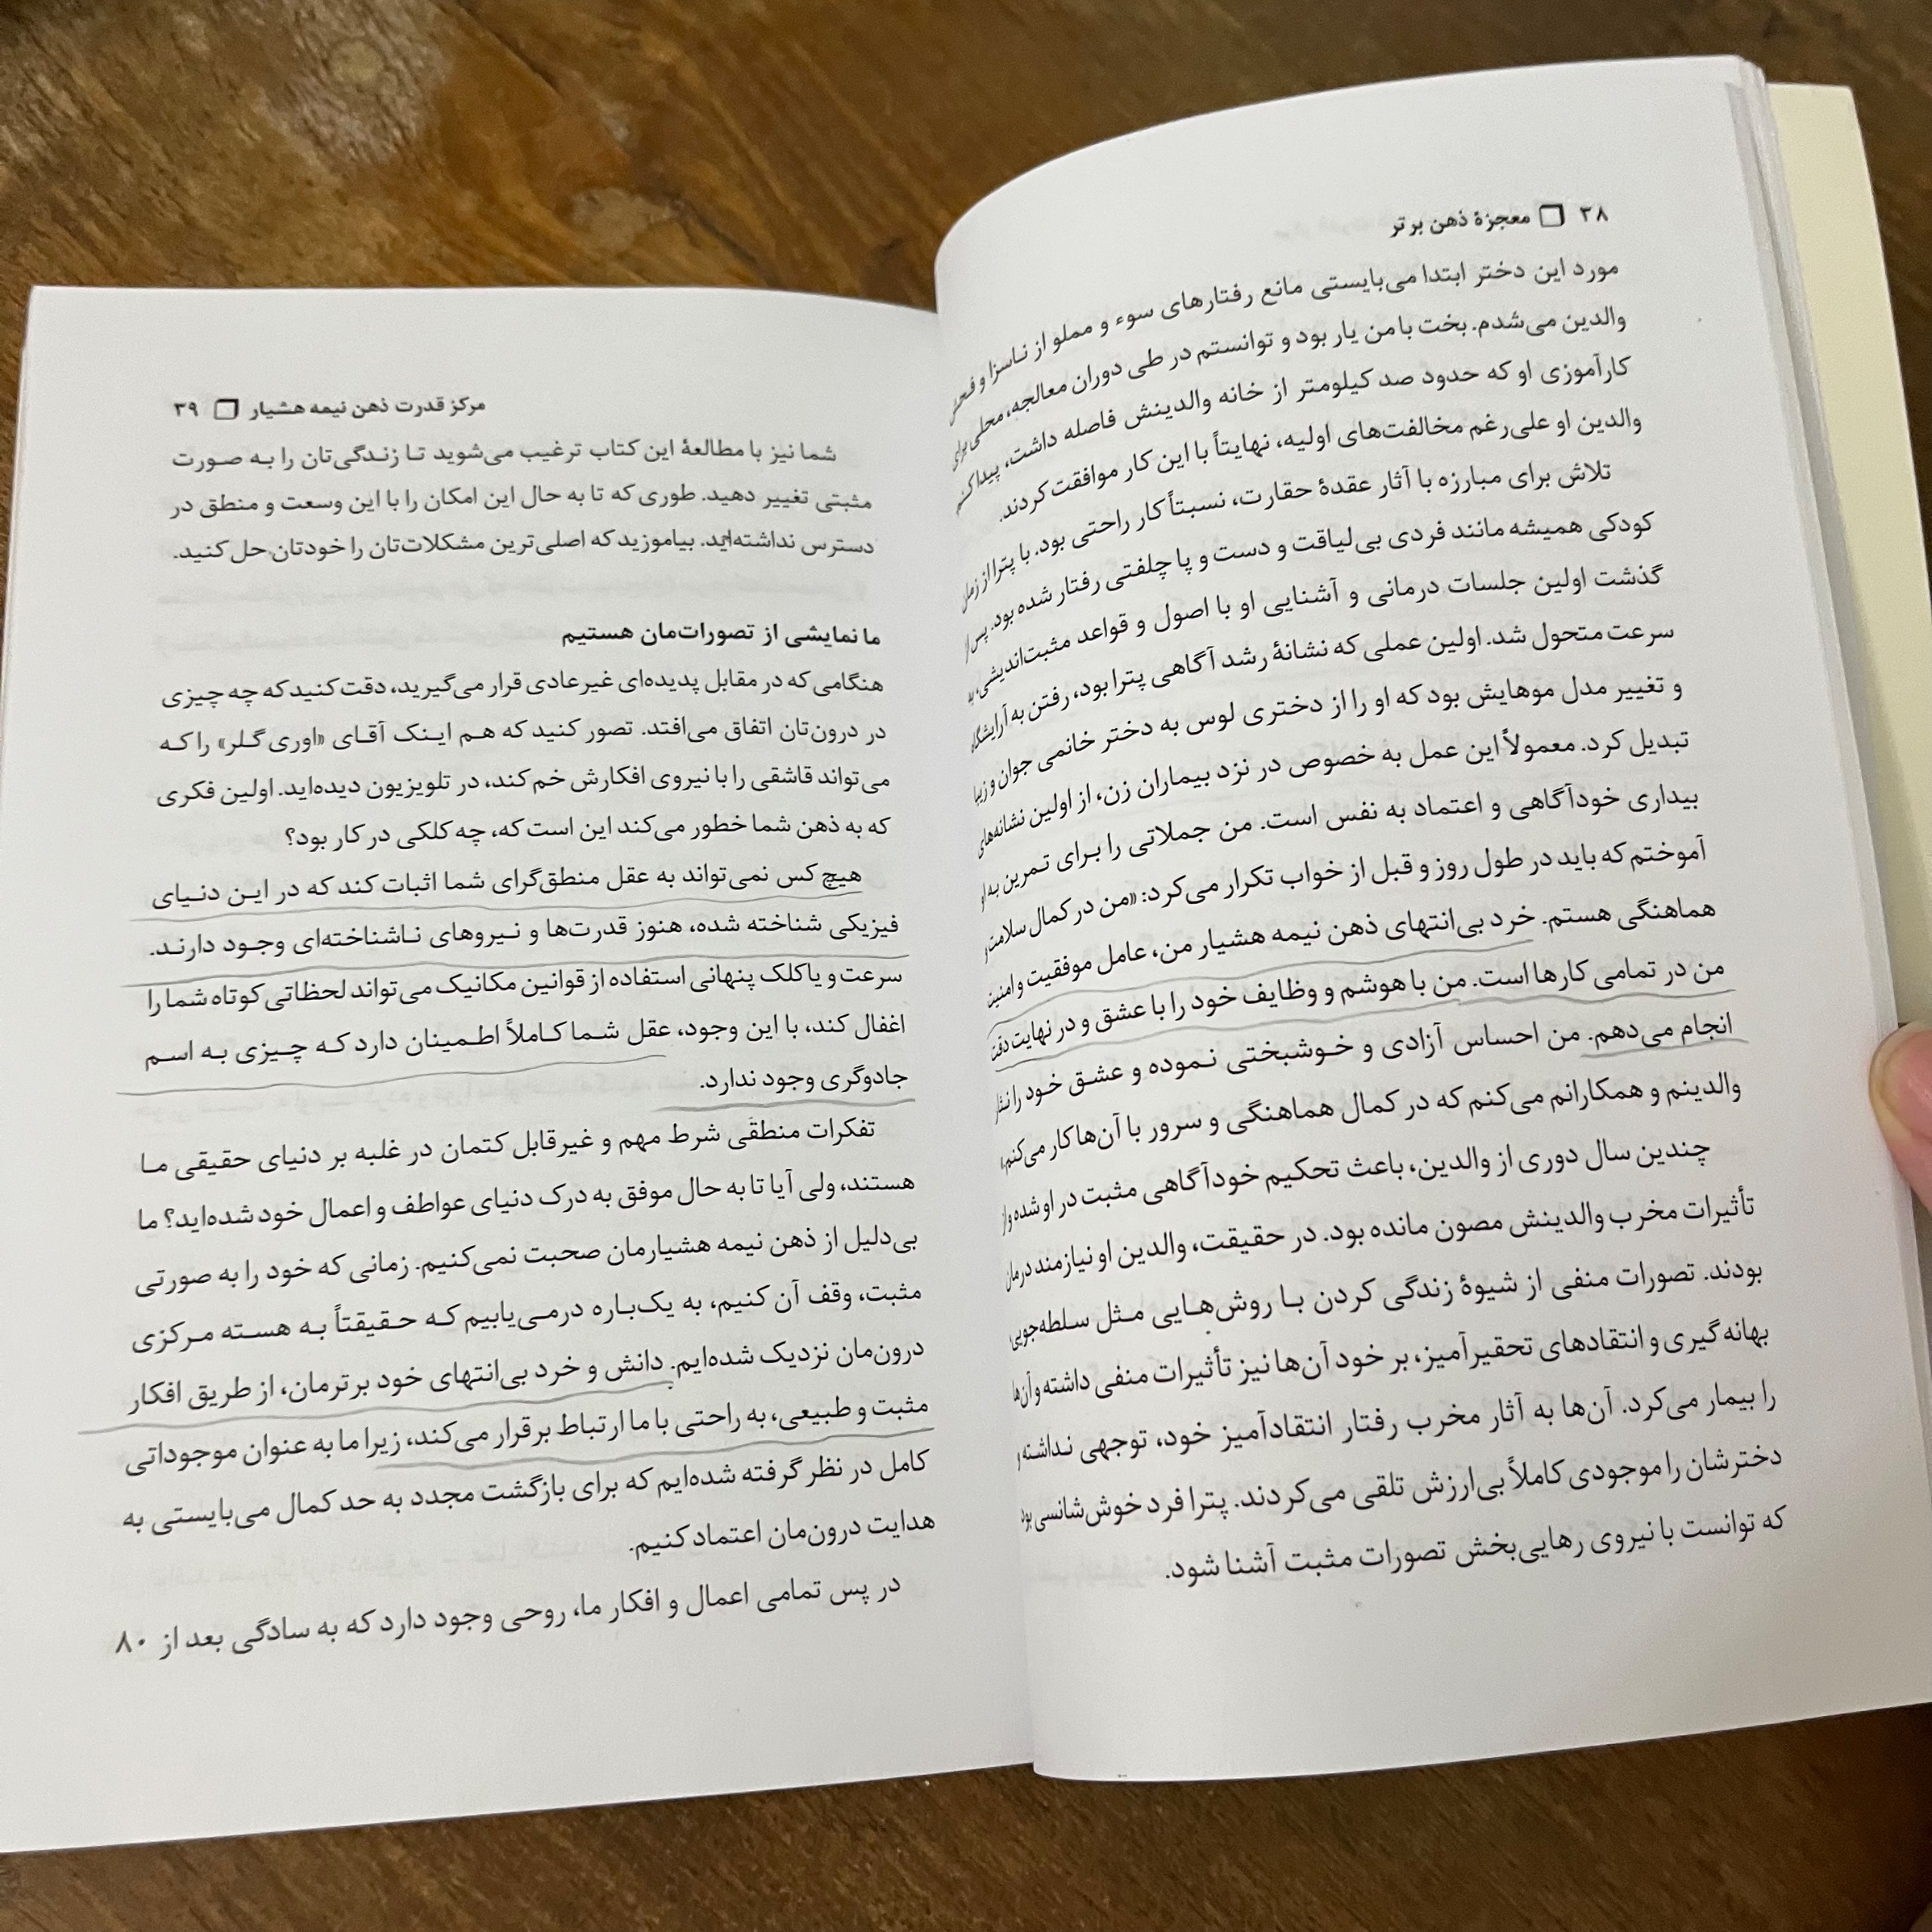 ۳۸ معجزهٔ ذهن برتر
مورد این دختر ابتدا می‌بایستی مانع رفتارهای سوء و مملو از ناسزا و فحش
والدین می‌شدم. بخت با من یار بود و توانستم در طی دوران معالجه، محلی برای
کارآموزی او که حدود صد کیلومتر از خانه والدینش فاصله داشت، پیدا کنم
والدین او علی‌رغم مخالفت‌های اولیه، نهایتاً با این کار موافقت کردند.
تلاش برای مبارزه با آثار عقدهٔ حقارت، نسبتاً کار راحتی بود. با پترا از زمان
کودکی همیشه مانند فردی بی‌لیاقت و دست و پا چلفتی رفتار شده بود. پس از
گذشت اولین جلسات درمانی و آشنایی او با اصول و قواعد مثبت‌اندیشی، به
سرعت متحول شد. اولین عملی که نشانهٔ رشد آگاهی پترا بود، رفتن به آرایشگاه
و تغییر مدل موهایش بود که او را از دختری لوس به دختر خانمی جوان و زیبا
تبدیل کرد. معمولاً این عمل به خصوص در نزد بیماران زن، از اولین نشانه‌های
بیداری خودآگاهی و اعتماد به نفس است. من جملاتی را برای تمرین به او
آموختم که باید در طول روز و قبل از خواب تکرار می‌کرد: «من در کمال سلامت و
هماهنگی هستم. خرد بی‌انتهای ذهن نیمه هشیار من، عامل موفقیت و امنیت
من در تمامی کارها است. من با هوشم و وظایف خود را با عشق و در نهایت دقت
انجام می‌دهم. من احساس آزادی و خوشبختی نموده و عشق خود را نثار
والدینم و همکارانم می‌کنم که در کمال هماهنگی و سرور با آن‌ها کار می‌کنم.»
چندین سال دوری از والدین، باعث تحکیم خودآگاهی مثبت در او شده و از
تأثیرات مخرب والدینش مصون مانده بود. در حقیقت، والدین او نیازمند درمان
بودند. تصورات منفی از شیوهٔ زندگی کردن با روش‌هایی مثل سلطه‌جویی،
بهانه‌گیری و انتقادهای تحقیرآمیز، بر خود آن‌ها نیز تأثیرات منفی داشته و آن‌ها
را بیمار می‌کرد. آن‌ها به آثار مخرب رفتار انتقادآمیز خود، توجهی نداشته و
دخترشان را موجودی کاملاً بی‌ارزش تلقی می‌کردند. پترا فرد خوش‌شانسی بود
که توانست با نیروی رهایی‌بخش تصورات مثبت آشنا شود.
مرکز قدرت ذهن نیمه هشیار ۳۹
شما نیز با مطالعهٔ این کتاب ترغیب می‌شوید تا زندگی‌تان را به صورت
مثبتی تغییر دهید. طوری که تا به حال این امکان را با این وسعت و منطق در
دسترس نداشته‌اید. بیاموزید که اصلی‌ترین مشکلات‌تان را خودتان حل کنید.
ما نمایشی از تصورات‌مان هستیم
هنگامی که در مقابل پدیده‌ای غیرعادی قرار می‌گیرید، دقت کنید که چه چیزی
در درون‌تان اتفاق می‌افتد. تصور کنید که هم اینک آقای «اوری گلر» را که
می‌تواند قاشقی را با نیروی افکارش خم کند، در تلویزیون دیده‌اید. اولین فکری
که به ذهن شما خطور می‌کند این است که، چه کلکی در کار بود؟
هیچ کس نمی‌تواند به عقل منطق‌گرای شما اثبات کند که در این دنیای
فیزیکی شناخته شده، هنوز قدرت‌ها و نیروهای ناشناخته‌ای وجود دارند.
سرعت و یا کلک پنهانی استفاده از قوانین مکانیک می‌تواند لحظاتی کوتاه شما را
اغفال کند، با این وجود، عقل شما کاملاً اطمینان دارد که چیزی به اسم
جادوگری وجود ندارد.
تفکرات منطقی شرط مهم و غیرقابل کتمان در غلبه بر دنیای حقیقی ما
هستند، ولی آیا تا به حال موفق به درک دنیای عواطف و اعمال خود شده‌اید؟ ما
بی‌دلیل از ذهن نیمه هشیارمان صحبت نمی‌کنیم. زمانی که خود را به صورتی
مثبت، وقف آن کنیم، به یک‌باره درمی‌یابیم که حقیقتاً به هسته مرکزی
درون‌مان نزدیک شده‌ایم. دانش و خرد بی‌انتهای خود برترمان، از طریق افکار
مثبت و طبیعی، به راحتی با ما ارتباط برقرار می‌کند، زیرا ما به عنوان موجوداتی
کامل در نظر گرفته شده‌ایم که برای بازگشت مجدد به حد کمال می‌بایستی به
هدایت درون‌مان اعتماد کنیم.
در پس تمامی اعمال و افکار ما، روحی وجود دارد که به سادگی بعد از ۸۰